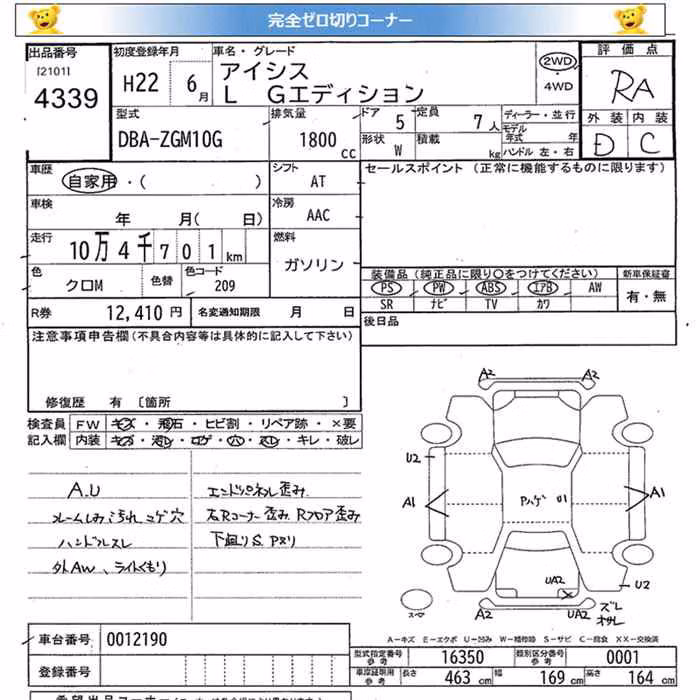 完全ゼロ切りコーナー
出品番号
[2101]
4339
初度登録年月
H22 6月
車名・グレード
アイシス
L Gエディション
2WD
・
4WD
評価点
RA
外装 内装
D C
型式
DBA-ZGM10G
排気量
1800
cc
ドア 5 定員 7人
形状 W 積載 kg
ディーラー・並行
モデル年式 年
ハンドル 左・右
車歴
自家用・( )
シフト
AT
セールスポイント (正常に機能するものに限ります)
車検
年 月( 日)
冷房
AAC
走行
10万4千701km
燃料
ガソリン
色
クロM
色替
色コード
209
装備品(純正品に限り○をつけてください)
新車保証書
PS PW ABS エアB AW
SR ナビ TV カワ
有・無
R券 12,410 円
名変通知期限 月 日
後日品
注意事項申告欄(不具合内容等は具体的に記入して下さい)
修復歴 有 〔箇所 〕
検査員記入欄
FW キズ・飛石・ヒビ割・リペア跡・×要
内装 キズ・汚レ・コゲ・穴・スレ・キレ・破レ
A.U
ルームしみ汚れ コゲ穴
ハンドルスレ
外AW、ライトくもり
エンドパネル歪み
右Rコーナー歪み Rフロア歪み
下廻りS Pサリ
A2 A2
U2
A1 A1
Pハゲ U1
UA2
U2
A2 UA2
ズレ
オサレ
スペアー
A-キズ E-エクボ U-凹み W-補修跡 S-サビ C-腐食 XX-交換済
車台番号 0012190
登録番号
型式指定番号 参考 16350
類別区分番号 参考 0001
車庫証明用 参考 長さ 463 cm 幅 169 cm 高さ 164 cm